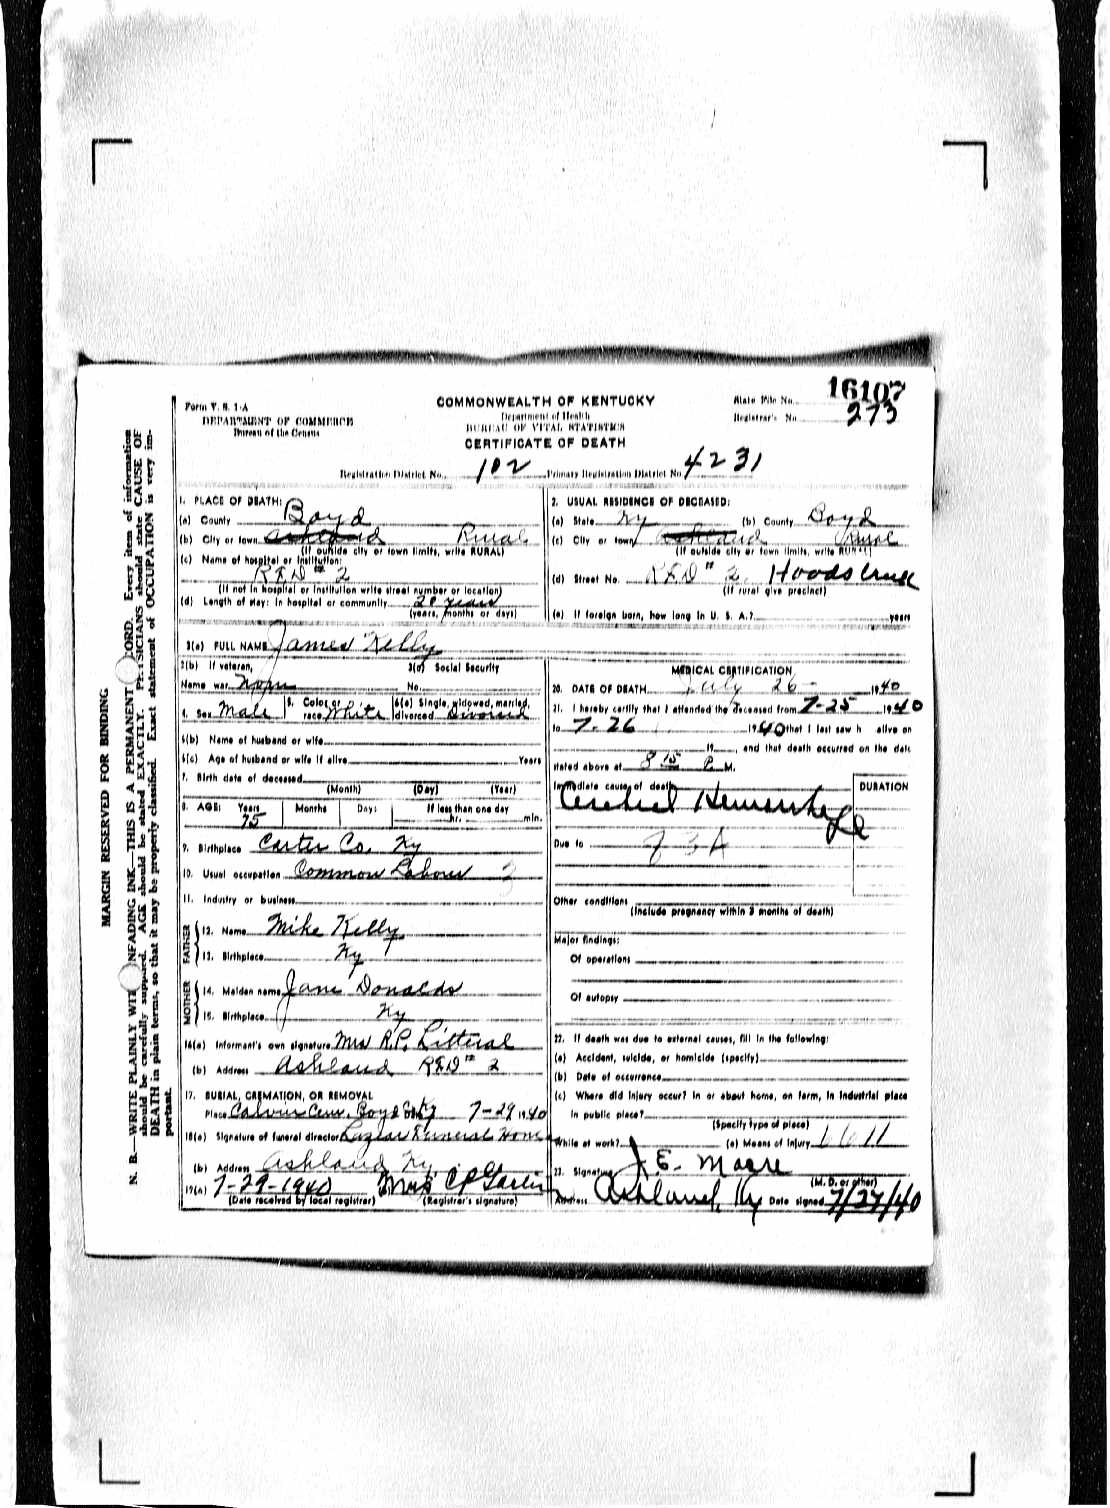 16107
Form V. S. 1-A
DEPARTMENT OF COMMERCE
Bureau of the Census
COMMONWEALTH OF KENTUCKY
Department of Health
BUREAU OF VITAL STATISTICS
CERTIFICATE OF DEATH
State File No.
Registrar's No. 273
Registration District No. 102 Primary Registration District No. 4231
1. PLACE OF DEATH:
(a) County Boyd
(b) City or town Ashland Rural
(If outside city or town limits, write RURAL)
(c) Name of hospital or institution:
RFD # 2
(If not in hospital or institution write street number or location)
(d) Length of stay: In hospital or community 20 years
(years, months or days)
2. USUAL RESIDENCE OF DECEASED:
(a) State Ky (b) County Boyd
(c) City or town Ashland Rural
(If outside city or town limits, write RURAL)
(d) Street No. RFD # 2. Hoods Creek
(If rural give precinct)
(e) If foreign born, how long in U. S. A.? years
3(a) FULL NAME James Kelly
3(b) If veteran, 3(c) Social Security
Name war None No.
4. Sex Male 5. Color or race White 6(a) Single, widowed, married, divorced Divorced
6(b) Name of husband or wife
6(c) Age of husband or wife if alive Years
7. Birth date of deceased
(Month) (Day) (Year)
8. AGE: Years Months Days If less than one day
75 hr. min.
9. Birthplace Carter Co. Ky
10. Usual occupation Common Labour 3
11. Industry or business
FATHER
12. Name Mike Kelly
13. Birthplace Ky
MOTHER
14. Maiden name Jane Donalds
15. Birthplace Ky
16(a) Informant's own signature Mrs R.P. Litteral
(b) Address Ashland RFD # 2
17. BURIAL, CREMATION, OR REMOVAL
Place Boyd 7-29 1940
18(a) Signature of funeral director Lazear Funeral Home
(b) Address Ashland Ky.
19(a) 7-29-1940 Mrs C P
(Date received by local registrar) (Registrar's signature)
MEDICAL CERTIFICATION
20. DATE OF DEATH July 26- 1940
21. I hereby certify that I attended the deceased from 7-25 1940
to 7-26 1940 that I last saw h alive on
19 , and that death occurred on the date
stated above at 8 15 P. M.
Immediate cause of death DURATION
Cerebral Hemorrhage
Due to 83A
Other conditions
(Include pregnancy within 3 months of death)
Major findings:
Of operations
Of autopsy
22. If death was due to external causes, fill in the following:
(a) Accident, suicide, or homicide (specify)
(b) Date of occurrence
(c) Where did injury occur? In or about home, on farm, in industrial place
in public place?
(Specify type of place)
While at work? (e) Means of Injury
23. Signature J. E. Moore
(M. D. or other)
Address Ashland, Ky Date signed 7/27/40
MARGIN RESERVED FOR BINDING
N. B.—WRITE PLAINLY WITH UNFADING INK—THIS IS A PERMANENT RECORD. Every item of information
should be carefully supplied. AGE should be stated EXACTLY. PHYSICIANS should state CAUSE OF
DEATH in plain terms, so that it may be properly classified. Exact statement of OCCUPATION is very im-
portant.